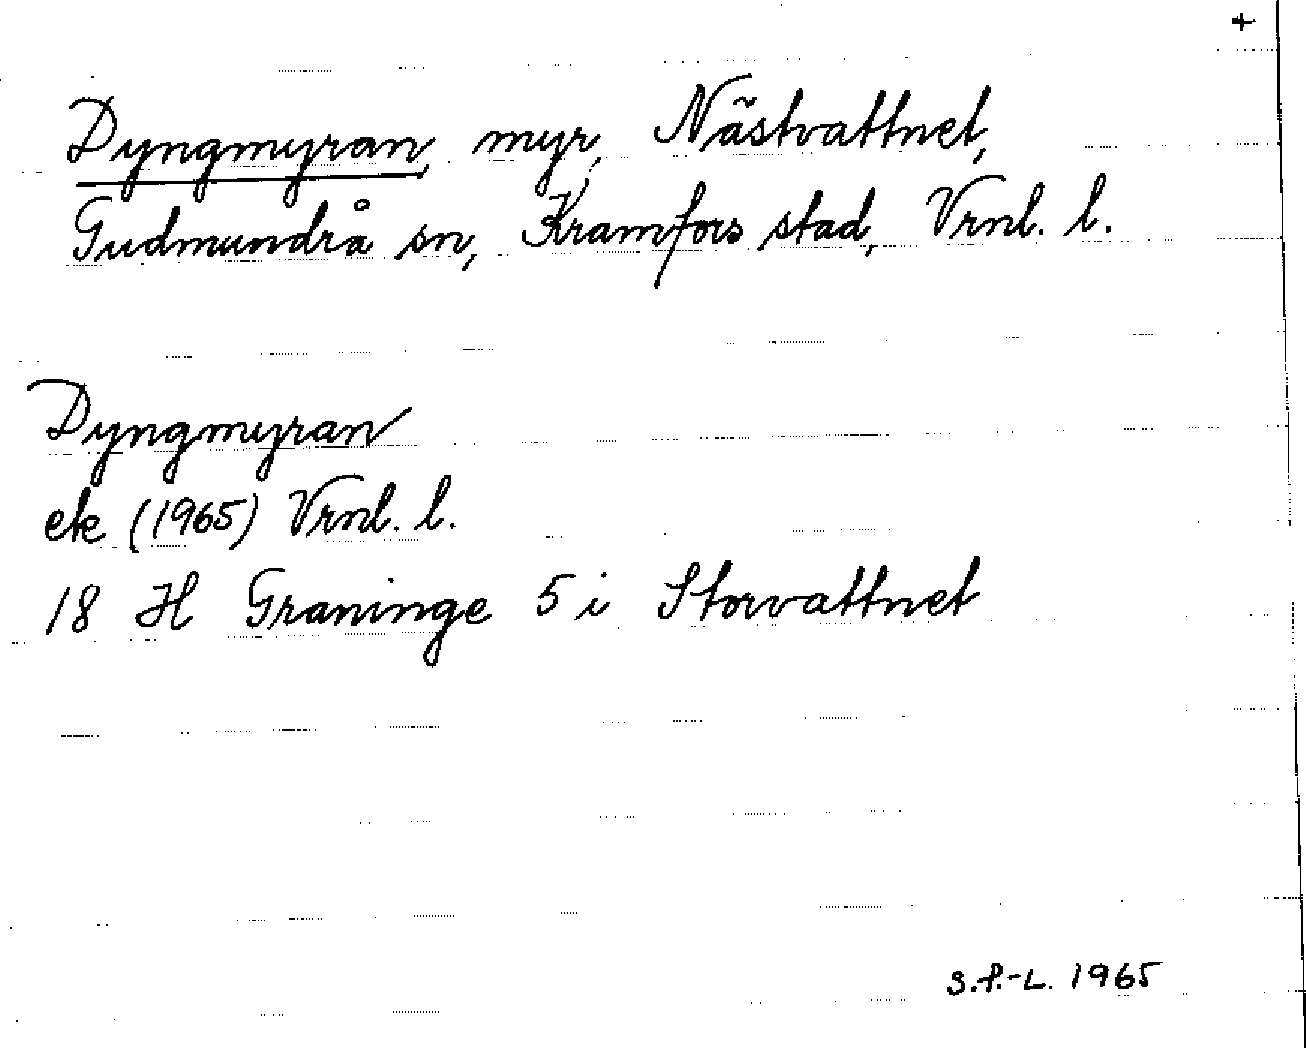 +
Dyngmyran, myr, Nästvattnet,
Gudmundrå sn, Kramfors stad, Vrnl. l.
Dyngmyran
ek (1965) Vrnl. l.
18 H Graninge 5 i Storvattnet
S.P.-L. 1965